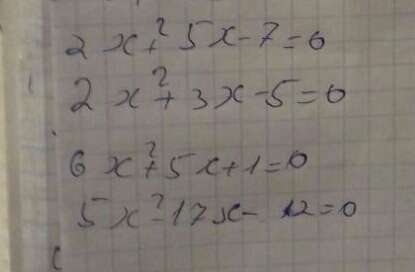 2x²+5x-7=0
2x²+3x-5=0
6x²+5x+1=0
5x²-17x-12=0